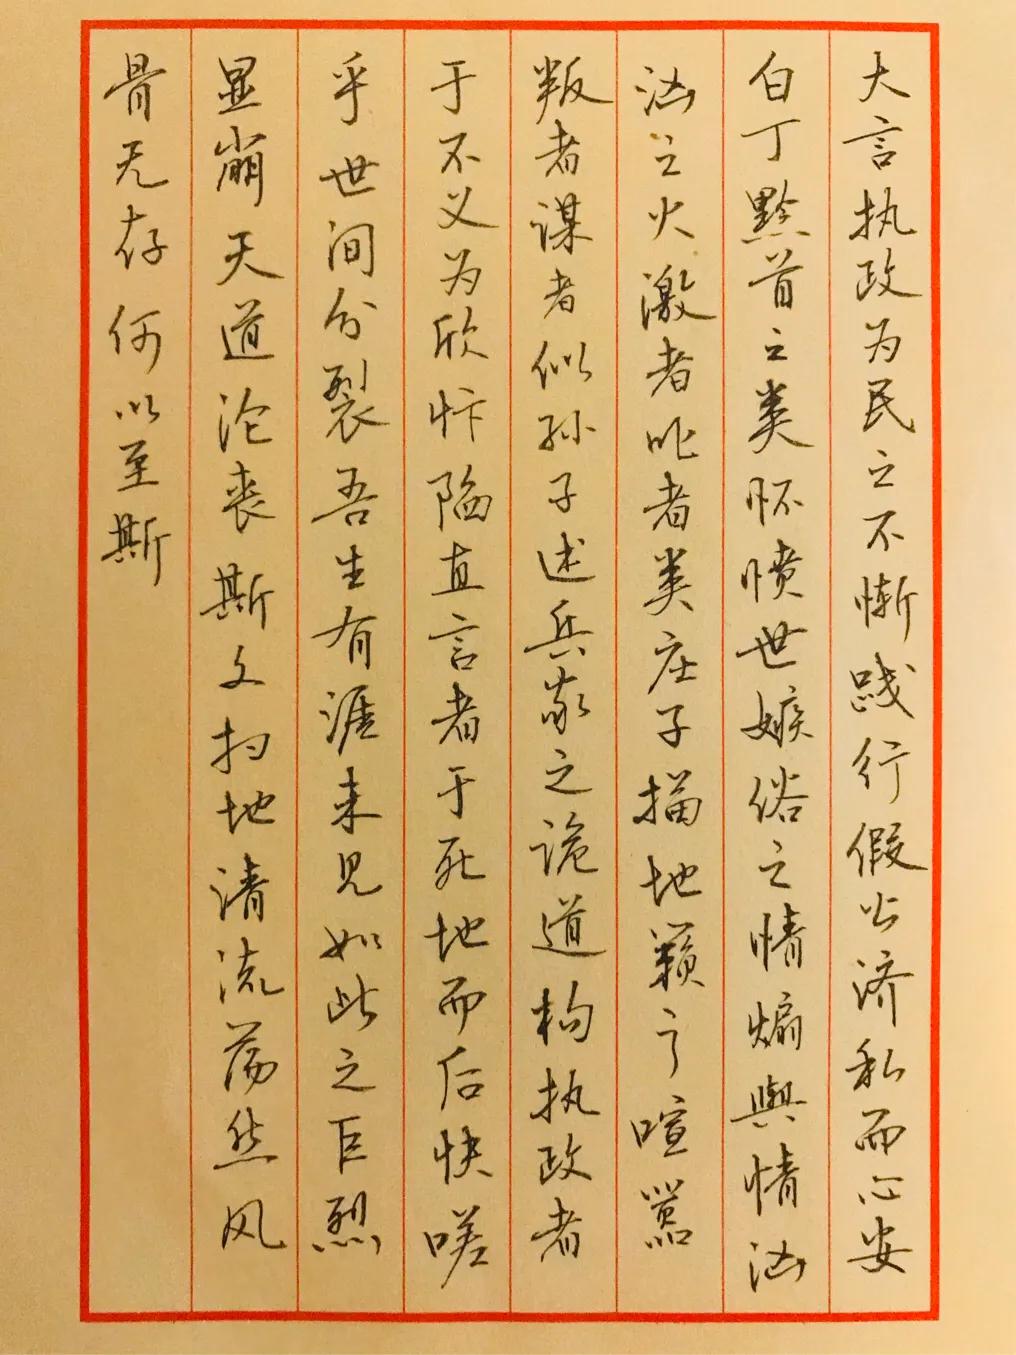 大言执政为民之不惭践行假公济私而心安
白丁黔首之类怀愤世嫉俗之情煽舆情汹
汹之火激者吡者类庄子描地籁之喧嚣
叛者谋者似孙子述兵家之诡道构执政者
于不义为欣忭陷直言者于死地而后快嗟
乎世间分裂吾生有涯未见如此之巨烈
显崩天道沦丧斯文扫地清流荡然风
骨无存何以至斯